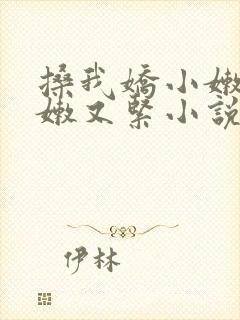 搡我嬌小嫩
嫩又緊小說
伊林